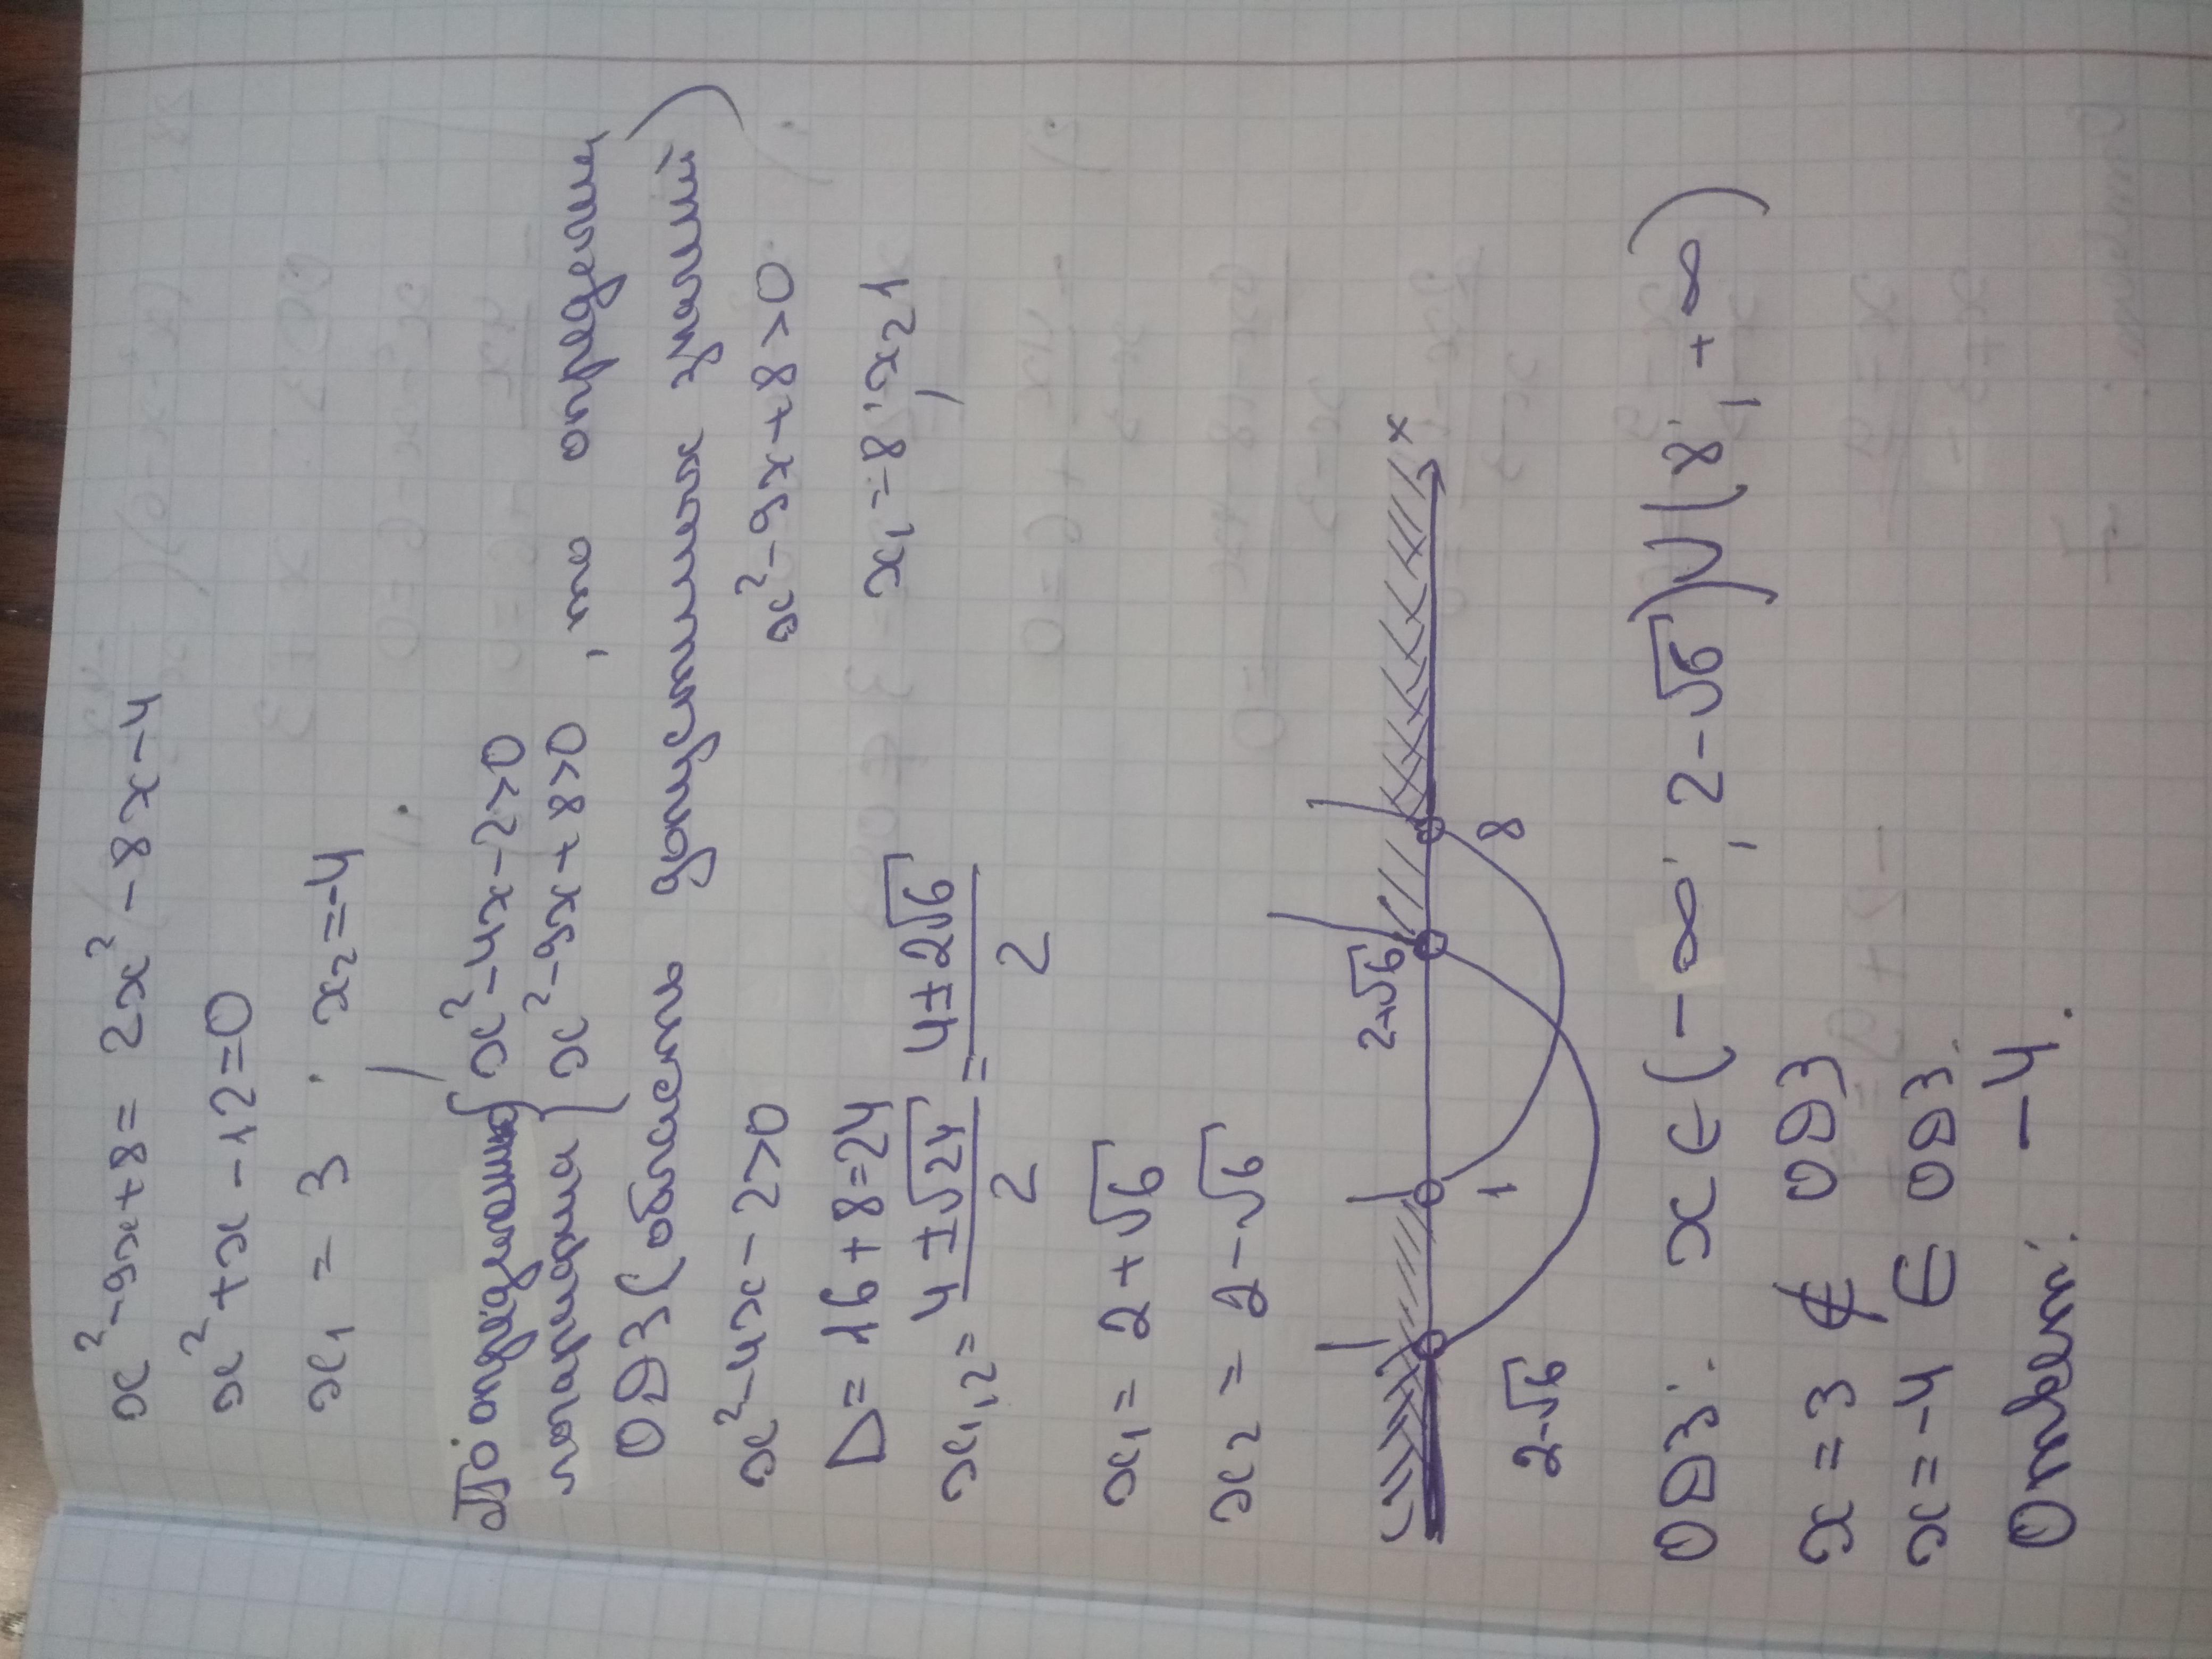 x² - 9x + 8 = 2x² - 8x - 4
x² + x - 12 = 0
x₁ = 3 ; x₂ = -4
По определению { x² - 4x - 2 > 0
логарифма { x² - 9x + 8 > 0 , то определим
ОДЗ (область допустимых значений)
x² - 4x - 2 > 0 x² - 9x + 8 > 0
D = 16 + 8 = 24 x₁ = 8 ; x₂ 1
x₁,₂ = (4 ± √24)/2 = (4 ± 2√6)/2
x₁ = 2 + √6
x₂ = 2 - √6
2-√6 1 2+√6 8 x
ОДЗ: x ∈ (-∞ ; 2-√6) ∪ (8 ; +∞)
x = 3 ∉ ОДЗ
x = -4 ∈ ОДЗ.
Ответ: -4.